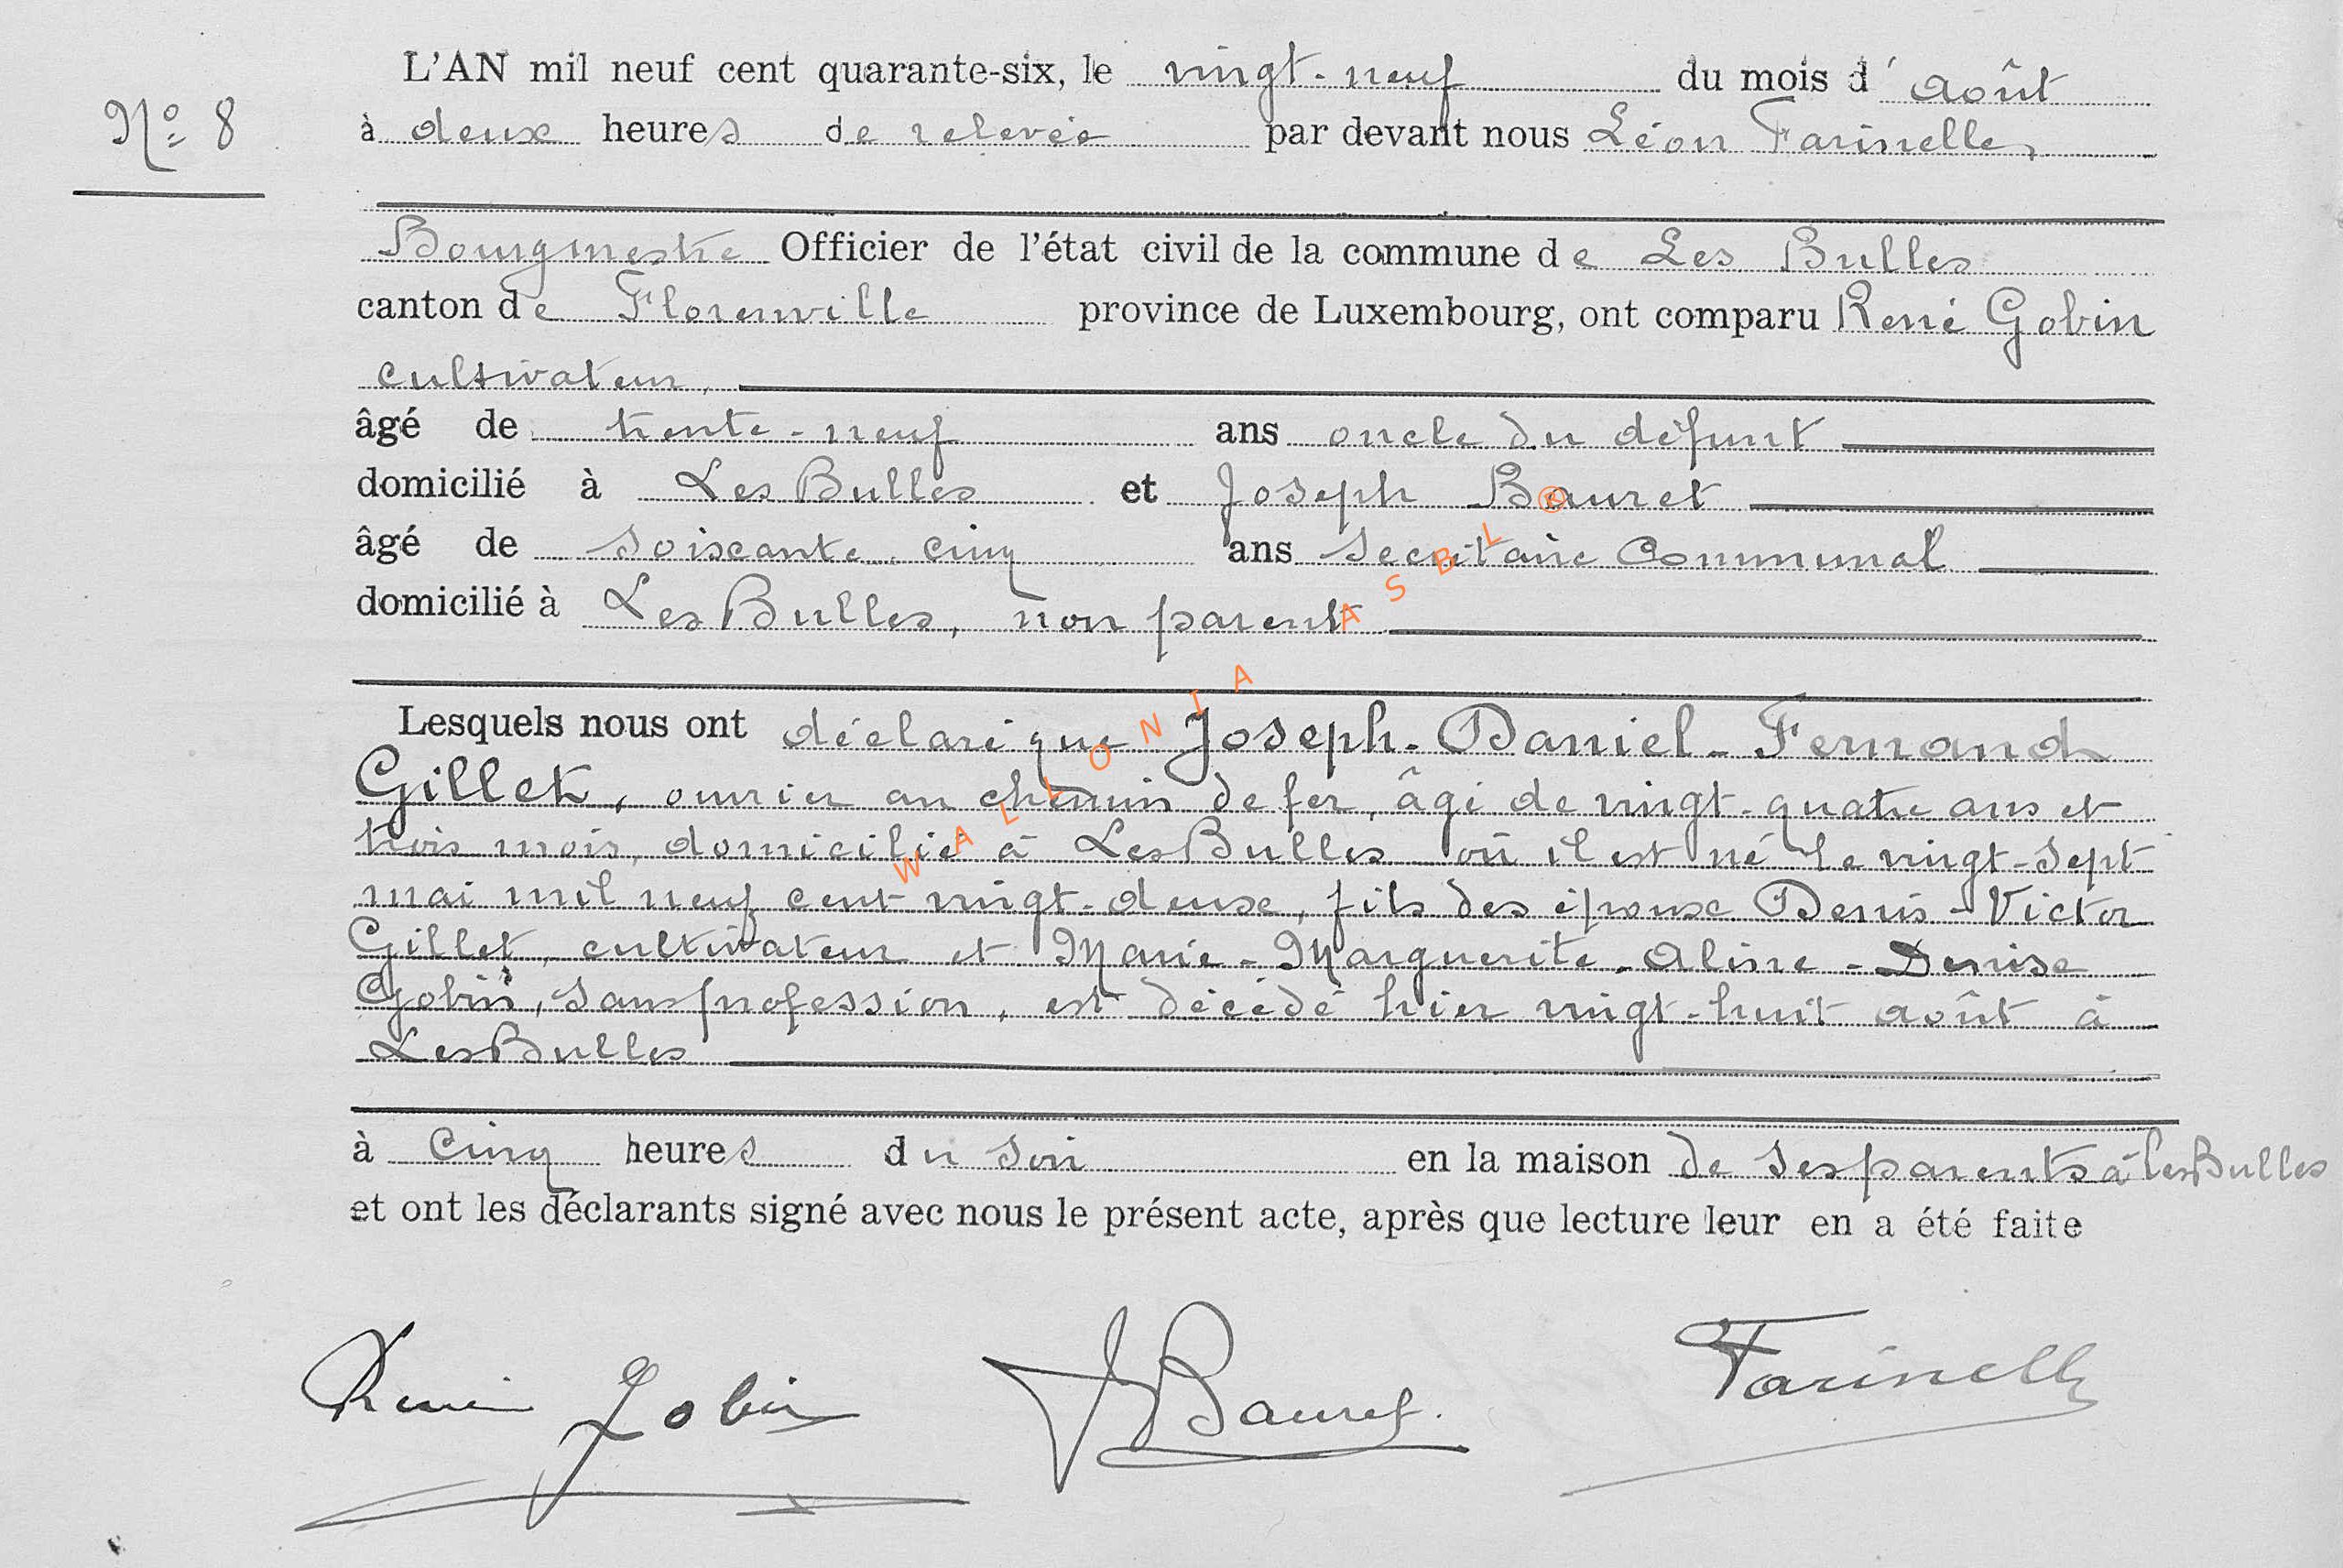 L'AN mil neuf cent quarante-six, le vingt-neuf du mois d'août
N° 8
à deux heures de relevée par devant nous Léon Farinelle,
Bourgmestre Officier de l'état civil de la commune de Les Bulles
canton de Florenville province de Luxembourg, ont comparu René Gobin
cultivateur,
âgé de trente-neuf ans oncle du défunt
domicilié à Les Bulles et Joseph Bauret
âgé de soixante-cinq ans secrétaire Communal
domicilié à Les Bulles, non parent
Lesquels nous ont déclaré que Joseph-Daniel-Fernand
Gillet, ouvrier au chemin de fer, âgé de vingt-quatre ans et
trois mois, domicilié à Les Bulles où il est né le vingt-sept
mai mil neuf cent vingt-deux, fils des époux Denis-Victor
Gillet, cultivateur et Marie-Marguerite-Aline-Denise
Gobin, sans profession, est décédé hier vingt-huit août à
Les Bulles
à cinq heures du soir en la maison de ses parents à Les Bulles
et ont les déclarants signé avec nous le présent acte, après que lecture leur en a été faite
René Gobin J Bauret. Farinelle
WALLONIA ASBL ®